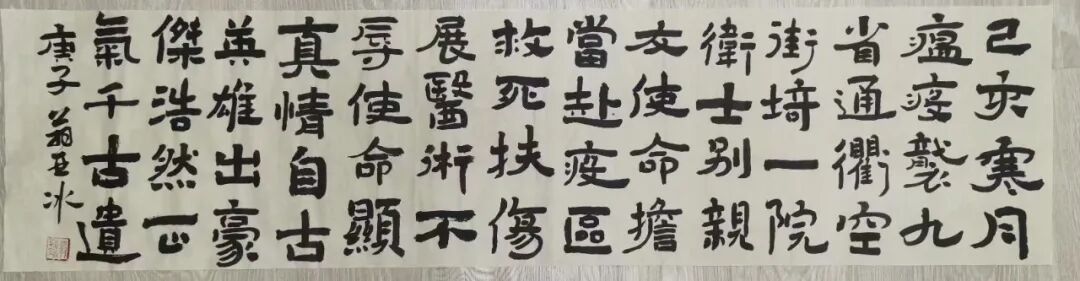 己亥寒月
瘟疫襲九
省通衢空
街埼一院
衛士别親
友使命擔
當赴疫區
救死扶傷
展醫術不
辱使命顯
真情自古
英雄出豪
傑浩然正
氣千古遺
庚子翁冰